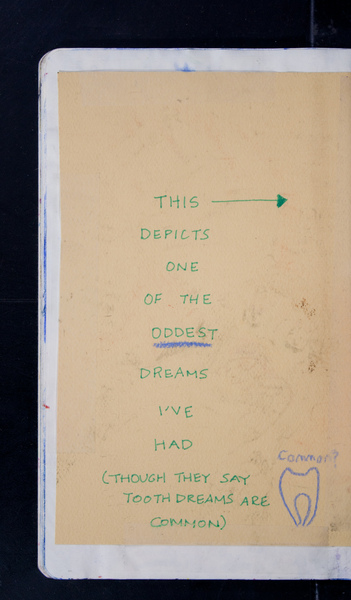 THIS
DEPICTS
ONE
OF THE
ODDEST
DREAMS
I'VE
HAD
(THOUGH THEY SAY
TOOTH DREAMS ARE
COMMON)
Common?